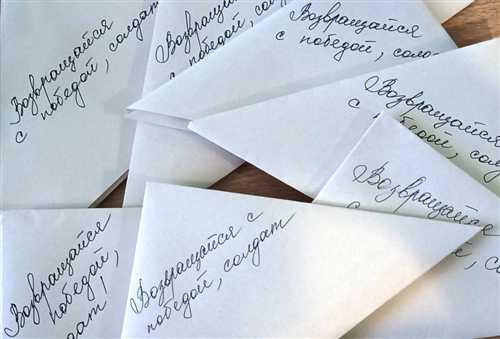 Возвращайся
с победой, солдат
Возвращайся
с победой, солдат
Возвращайся
с победой, солда
Возвращайся
с победой, солдат
Возвращайся
с
солд
Возвращайся
победой,
дат!
Возвращайся с
победой, солдат